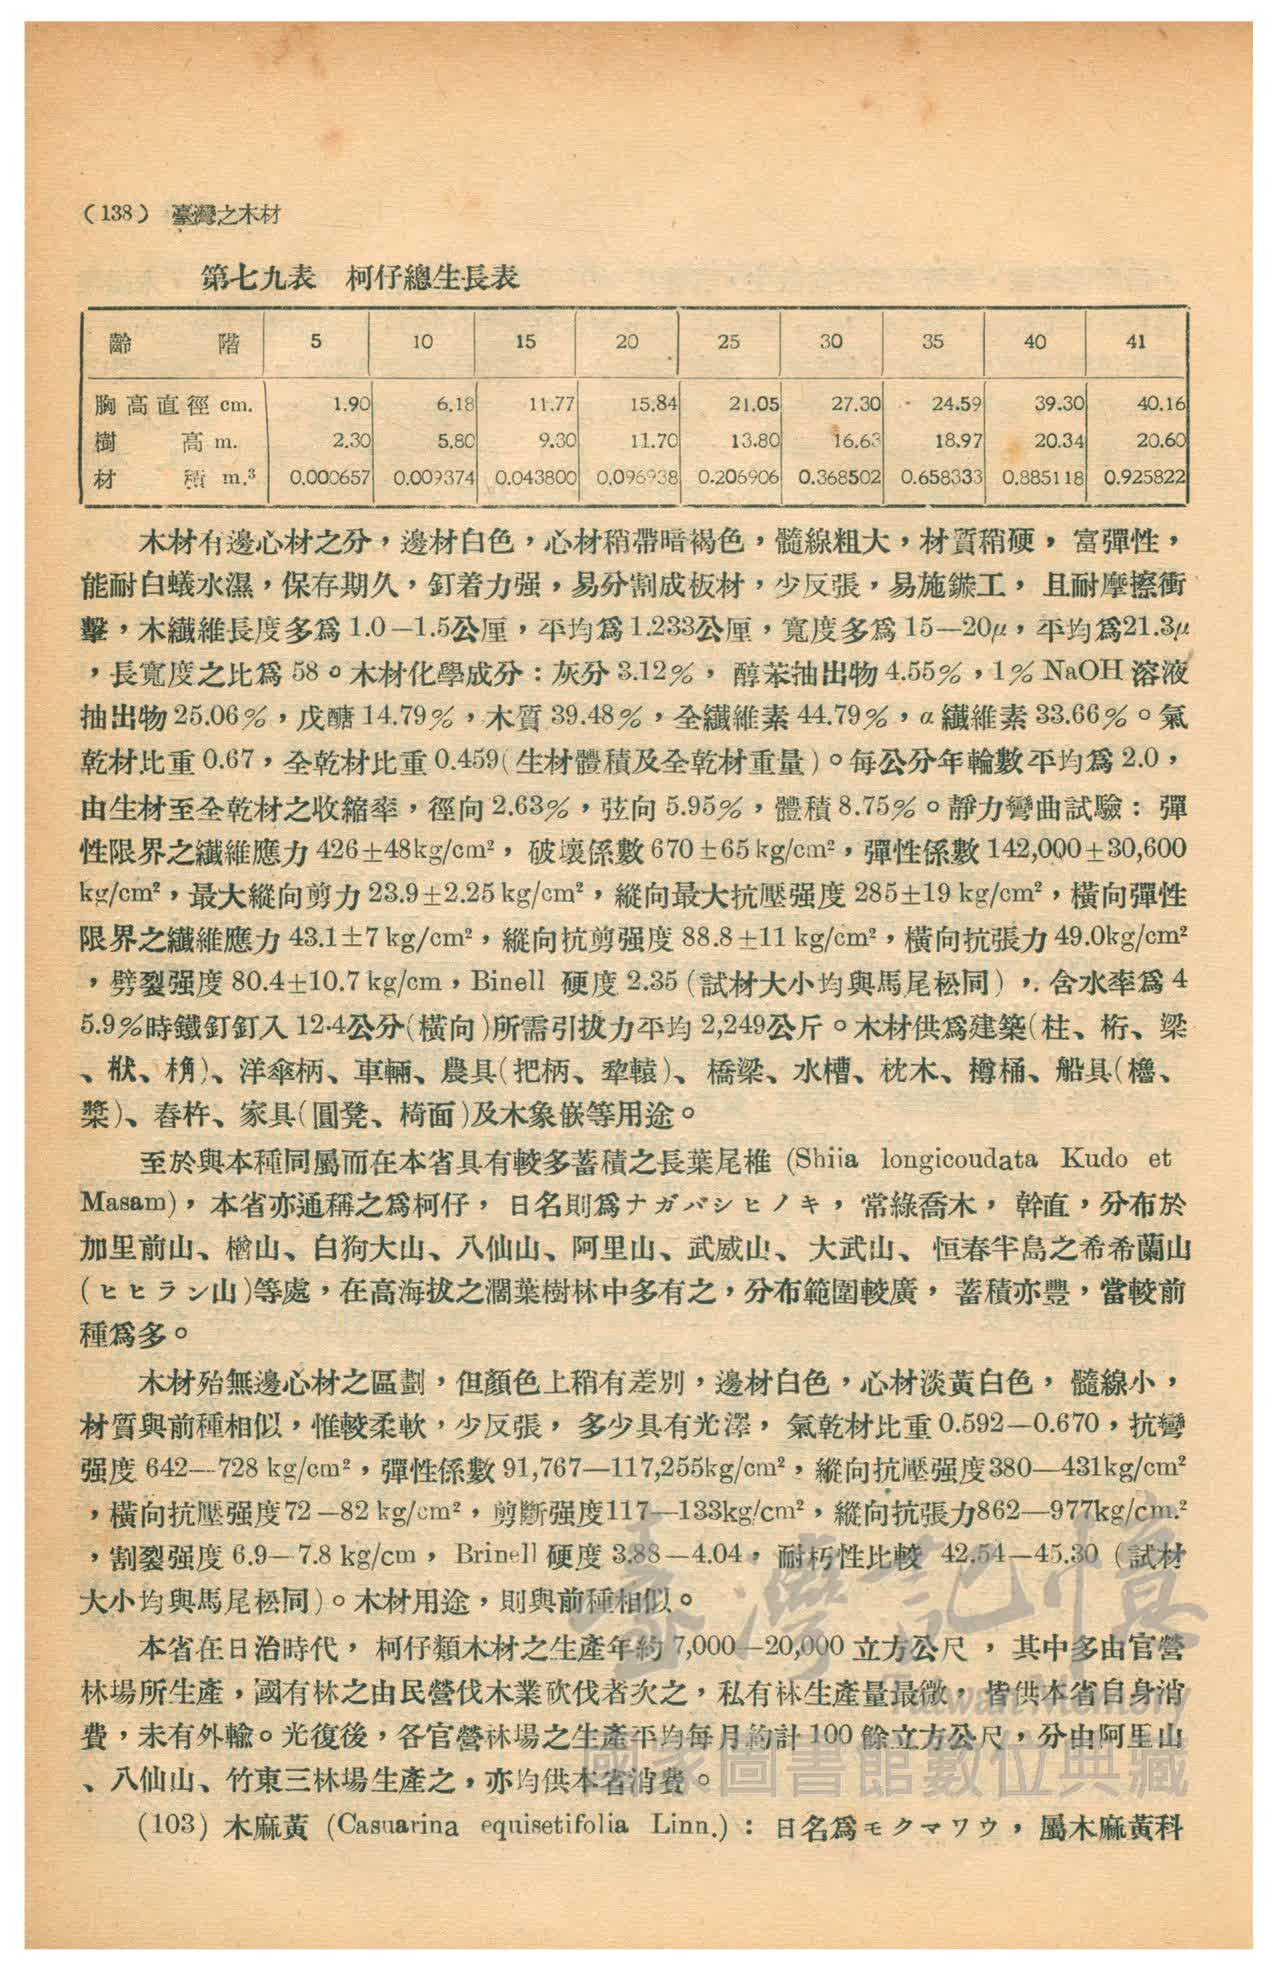 (138) 臺灣之木材
第七九表 柯仔總生長表
齡階 5 10 15 20 25 30 35 40 41
胸高直徑 cm. 1.90 6.18 11.77 15.84 21.05 27.30 24.59 39.30 40.16
樹高 m. 2.30 5.80 9.30 11.70 13.80 16.63 18.97 20.34 20.60
材積 m.³ 0.000657 0.009374 0.043800 0.096938 0.206906 0.368502 0.658333 0.885118 0.925822
木材有邊心材之分，邊材白色，心材稍帶暗褐色，髓線粗大，材質稍硬，富彈性，
能耐白蟻水濕，保存期久，釘着力强，易分割成板材，少反張，易施鏇工，且耐摩擦衝
擊，木纖維長度多爲1.0—1.5公厘，平均爲1.233公厘，寬度多爲15—20μ，平均爲21.3μ
，長寬度之比爲58。木材化學成分：灰分3.12%，醇苯抽出物4.55%，1% NaOH溶液
抽出物25.06%，戊醣14.79%，木質39.48%，全纖維素44.79%，α纖維素33.66%。氣
乾材比重0.67，全乾材比重0.459(生材體積及全乾材重量)。每公分年輪數平均爲2.0，
由生材至全乾材之收縮率，徑向2.63%，弦向5.95%，體積8.75%。靜力彎曲試驗：彈
性限界之纖維應力426±48kg/cm²，破壞係數670±65kg/cm²，彈性係數142,000±30,600
kg/cm²，最大縱向剪力23.9±2.25kg/cm²，縱向最大抗壓强度285±19kg/cm²，橫向彈性
限界之纖維應力43.1±7kg/cm²，縱向抗剪强度88.8±11kg/cm²，橫向抗張力49.0kg/cm²
，劈裂强度80.4±10.7kg/cm，Binell 硬度2.35(試材大小均與馬尾松同)，含水率爲4
5.9%時鐵釘釘入12.4公分(橫向)所需引拔力平均2,249公斤。木材供爲建築(柱、桁、梁
、栿、桷)、洋傘柄、車輛、農具(把柄、犂轅)、橋梁、水槽、枕木、樽桶、船具(櫓、
槳)、舂杵、家具(圓凳、椅面)及木象嵌等用途。
至於與本種同屬而在本省具有較多蓄積之長葉尾椎 (Shiia longicoudata Kudo et
Masam)，本省亦通稱之爲柯仔，日名則爲ナガバシヒノキ，常綠喬木，幹直，分布於
加里前山、檜山、白狗大山、八仙山、阿里山、武威山、大武山、恒春半島之希希蘭山
(ヒヒラン山)等處，在高海拔之濶葉樹林中多有之，分布範圍較廣，蓄積亦豐，當較前
種爲多。
木材殆無邊心材之區劃，但顏色上稍有差別，邊材白色，心材淡黃白色，髓線小，
材質與前種相似，惟較柔軟，少反張，多少具有光澤，氣乾材比重0.592—0.670，抗彎
强度642—728kg/cm²，彈性係數91,767—117,255kg/cm²，縱向抗壓强度380—431kg/cm²
，橫向抗壓强度72—82kg/cm²，剪斷强度117—133kg/cm²，縱向抗張力862—977kg/cm.²
，割裂强度6.9—7.8kg/cm，Brinell硬度3.88—4.04，耐朽性比較 42.54—45.30(試材
大小均與馬尾松同)。木材用途，則與前種相似。
本省在日治時代，柯仔類木材之生產年約7,000—20,000立方公尺，其中多由官營
林場所生產，國有林之由民營伐木業砍伐者次之，私有林生產量最微，皆供本省自身消
費，未有外輸。光復後，各官營林場之生產平均每月約計100餘立方公尺，分由阿里山
、八仙山、竹東三林場生產之，亦均供本省消費。
(103) 木麻黃 (Casuarina equisetifolia Linn.)：日名爲モクマワウ，屬木麻黃科
臺灣記憶
Taiwan Memory
國家圖書館數位典藏